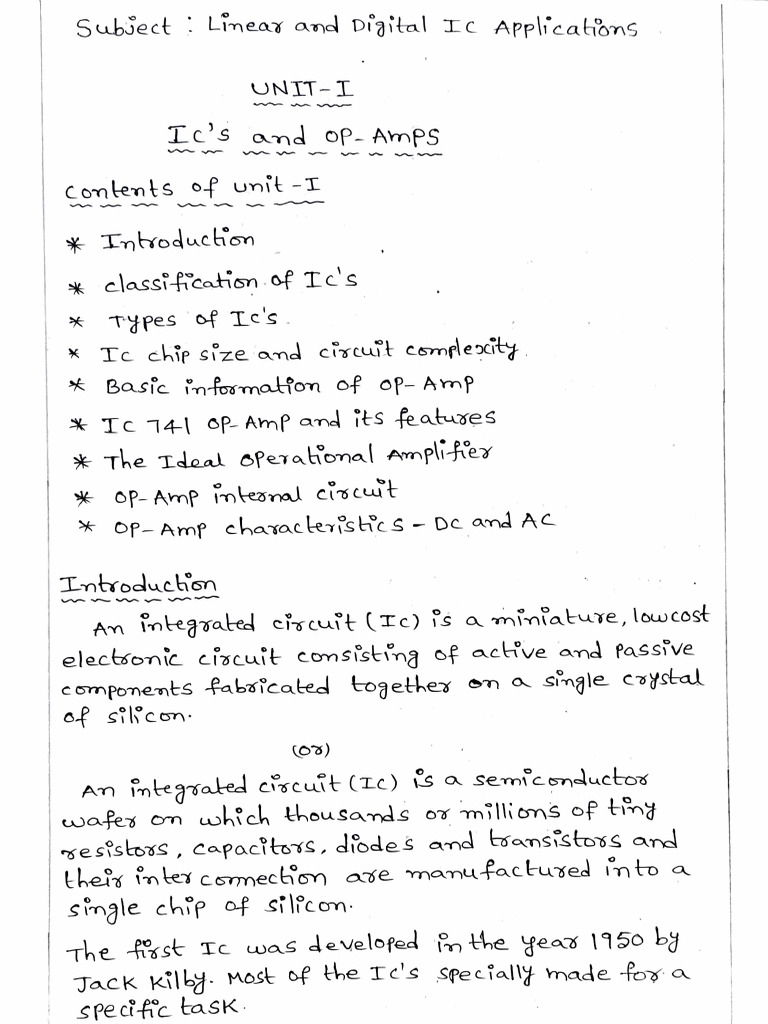 Subject : Linear and Digital IC Applications
UNIT-I
IC's and OP-AMPS
Contents of unit-I
* Introduction
* Classification of IC's
* Types of IC's.
* IC chip size and circuit complexity.
* Basic information of OP-Amp
* IC 741 OP-Amp and its features
* The Ideal Operational Amplifier
* OP-Amp internal circuit
* OP-Amp characteristics - DC and AC
Introduction
An integrated circuit (IC) is a miniature, lowcost
electronic circuit consisting of active and passive
components fabricated together on a single crystal
of silicon.
(or)
An integrated circuit (IC) is a semiconductor
wafer on which thousands or millions of tiny
resistors, capacitors, diodes and transistors and
their inter connection are manufactured into a
single chip of silicon.
The first IC was developed in the year 1950 by
Jack Kilby. Most of the IC's specially made for a
specific task.